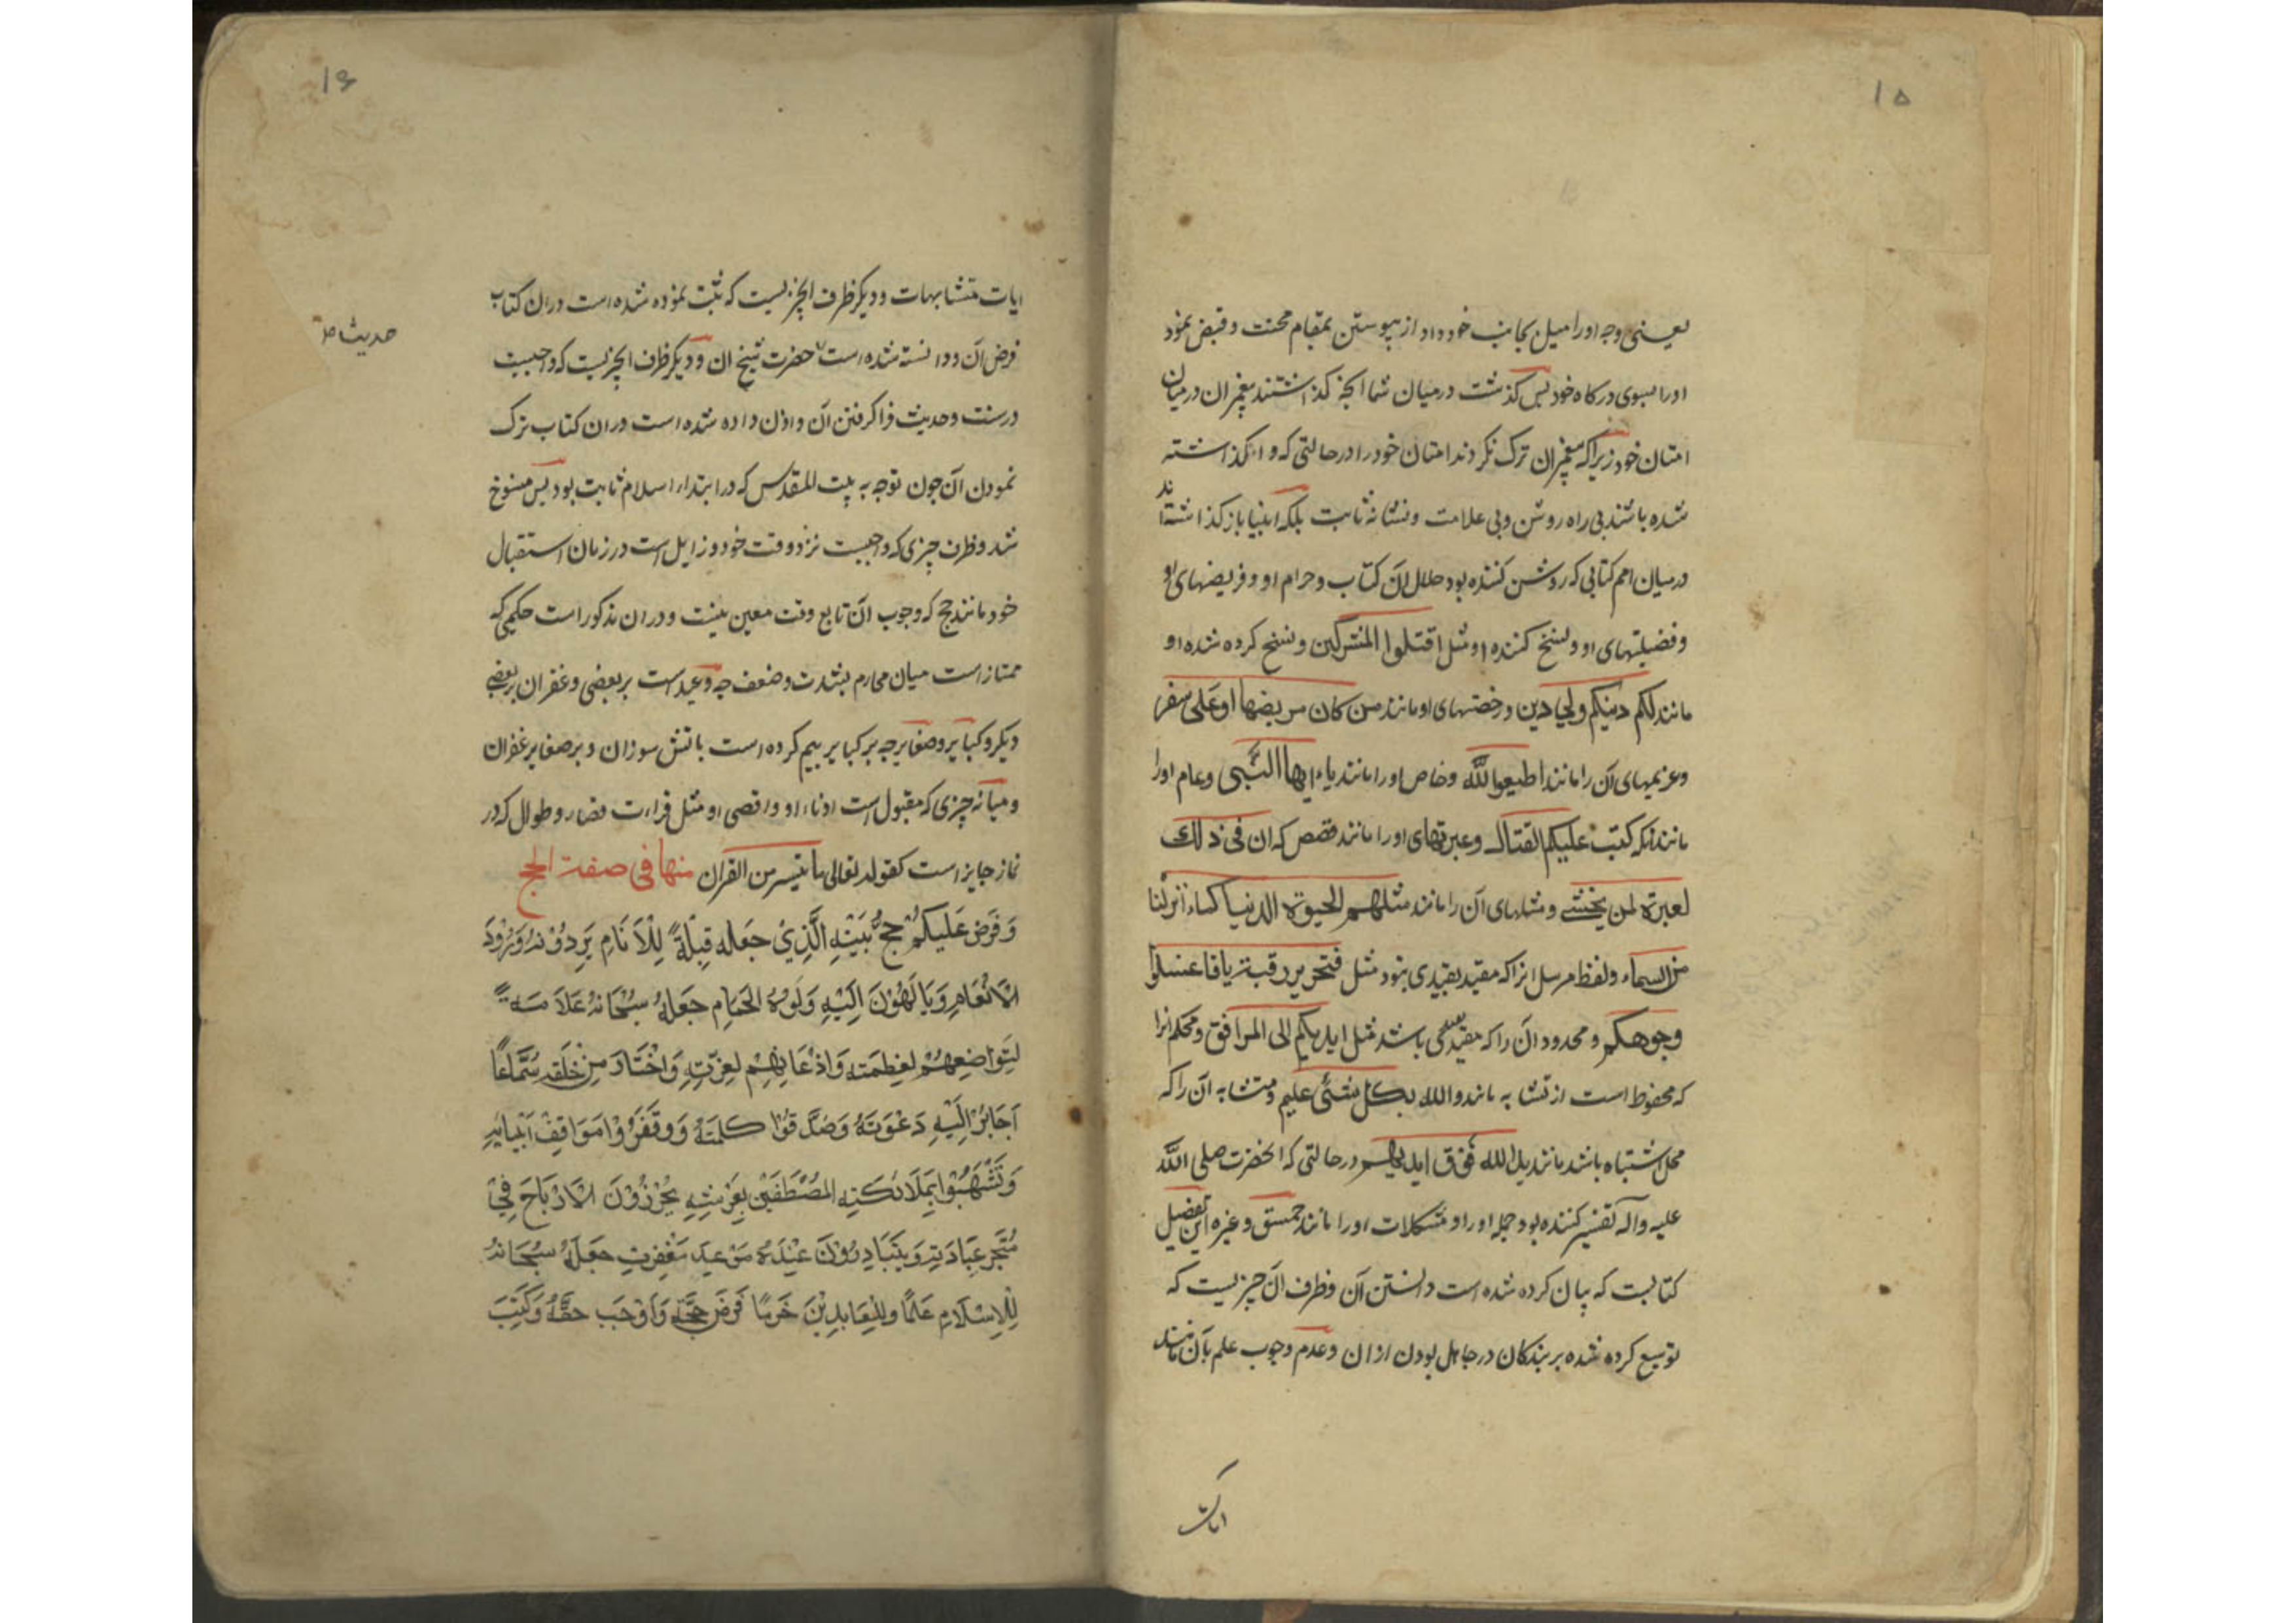 ۱۵
یعنی وجه اورا میل بجانب خود داد از پیوستن بمقام محنت و قبض نمود
اورا بسوی درکاه خود پس کذشت درمیان شما آنچه کذاشتند پیغمبران درمیان
امتان خود زیراکه پیغمبران ترک نکردند امتان خود را درحالتی که وا کذاشته
شده باشند بی راه روشن و بی علامت و نشانه ثابت بلکه انبیا باز کذاشته‌اند
درمیان امم کتابی که روشن کننده بود حلال آن کتاب و حرام او و فریضهای او
و فضیلتهای او و نسخ کننده او مثل اقتلوا المشرکین و نسخ کرده شده او
مانند لکم دینکم ولی دین و رخصتهای او مانند من کان مریضا او علی سفر
وعزیمهای آن را مانند اطیعوا الله وخاص او را مانند یاء ایها النبی وعام اورا
مانند آنکه کتب علیکم القتال وعبرتهای او را مانند قصص که ان فی ذلک
لعبرة لمن یخشی و مثلهای آن را مانند مثلهم الحیوة الدنیا کماء انزلنا
من السماء ولفظ مرسل انرا که مقید بقیدی نبود مثل فتحریر رقبة یا فاغسلوا
وجوهکم و محدود آن را که مقید بقیدی باشد مثل ایدیکم الی المرافق و محکم انرا
که محفوظ است از تشابه مانند والله بکل شئ علیم و متشابه آن را که
محل اشتباه باشد مانند ید الله فوق ایدیهم درحالتی که انحضرت صلی الله
علیه وآله تفسیر کننده بود جمله او را و مشکلات او را مانند حمعسق و غیره این تفصیل
کتابیست که بیان کرده شده است دانستن آن وظرف آن چیزیست که
توسیع کرده شده بر بندکان درجاهل بودن ازان وعدم وجوب علم بآن مانند
ایات
۱۶
ایات متشابهات و دیکر ظرف انچیزیست که ثبت نموده شده است دران کتاب
فرض آن ودانسته شده است حضرت نسخ ان و دیکر ظرف انچیزیست که واجبست
حدیث
درسنت وحدیث فراکرفتن آن و اذن داده شده است دران کتاب ترک
نمودن آن چون توجه به بیت المقدس که درابتداء اسلام ثابت بود پس منسوخ
شد وظرف چیزی که واجبست نزد وقت خود و زایل است درزمان استقبال
خود مانند حج که وجوب آن تابع وقت معین نیست و دران مذکور است حکمی که
ممتاز است میان محارم بشدت وضعف چه وعید است بر بعضی وغفران بر بعضی
دیکر و کبایر وصغایر چه بر کبایر بیم کرده است باتش سوزان و بر صغایر غفران
و میانه چیزی که مقبول است ادناء او و اقصی او مثل قراءت قصار و طوال که در
نماز جایز است کقوله تعالی ما تیسر من القران منها فی صفة الحج
وَفَرَضَ عَلَیکُمْ حَجَّ بَیْتِهِ الَّذِیْ جَعَلَهُ قِبْلَةً لِلْاَنَامِ یَرِدُوْنَهُ وُرُوْدَ
الْاَنْعَامِ وَیَالَهُوْنَ اِلَیْهِ وَلُوْهَ الْحَمَامِ جَعَلَهُ سُبْحَانَهُ عَلَامَةً
لِتَوَاضُعِهِمْ لِعَظَمَتِهِ وَاِذْعَانِهِمْ لِعِزَّتِهِ وَاخْتَارَ مِنْ خَلْقِهِ سُمَّاعًا
اَجَابُوْا اِلَیْهِ دَعْوَتَهُ وَصَدَّقُوْا کَلِمَتَهُ وَوَقَفُوْا مَوَاقِفَ اَنْبِیَائِهِ
وَتَشَبَّهُوْا بِمَلَائِکَتِهِ المُطِیْفِیْنَ بِعَرْشِهِ یُحْرِزُوْنَ الْاَرْبَاحَ فِیْ
مَتْجَرِ عِبَادَتِهِ وَیَتَبَادَرُوْنَ عِنْدَهُ مَوْعِدَ مَغْفِرَتِهِ جَعَلَهُ سُبْحَانَهُ
لِلْاِسْلَامِ عَلَمًا وَلِلْعَابِدِیْنَ حَرَمًا فَرَضَ حَجَّهُ وَاَوْجَبَ حَقَّهُ وَکَتَبَ